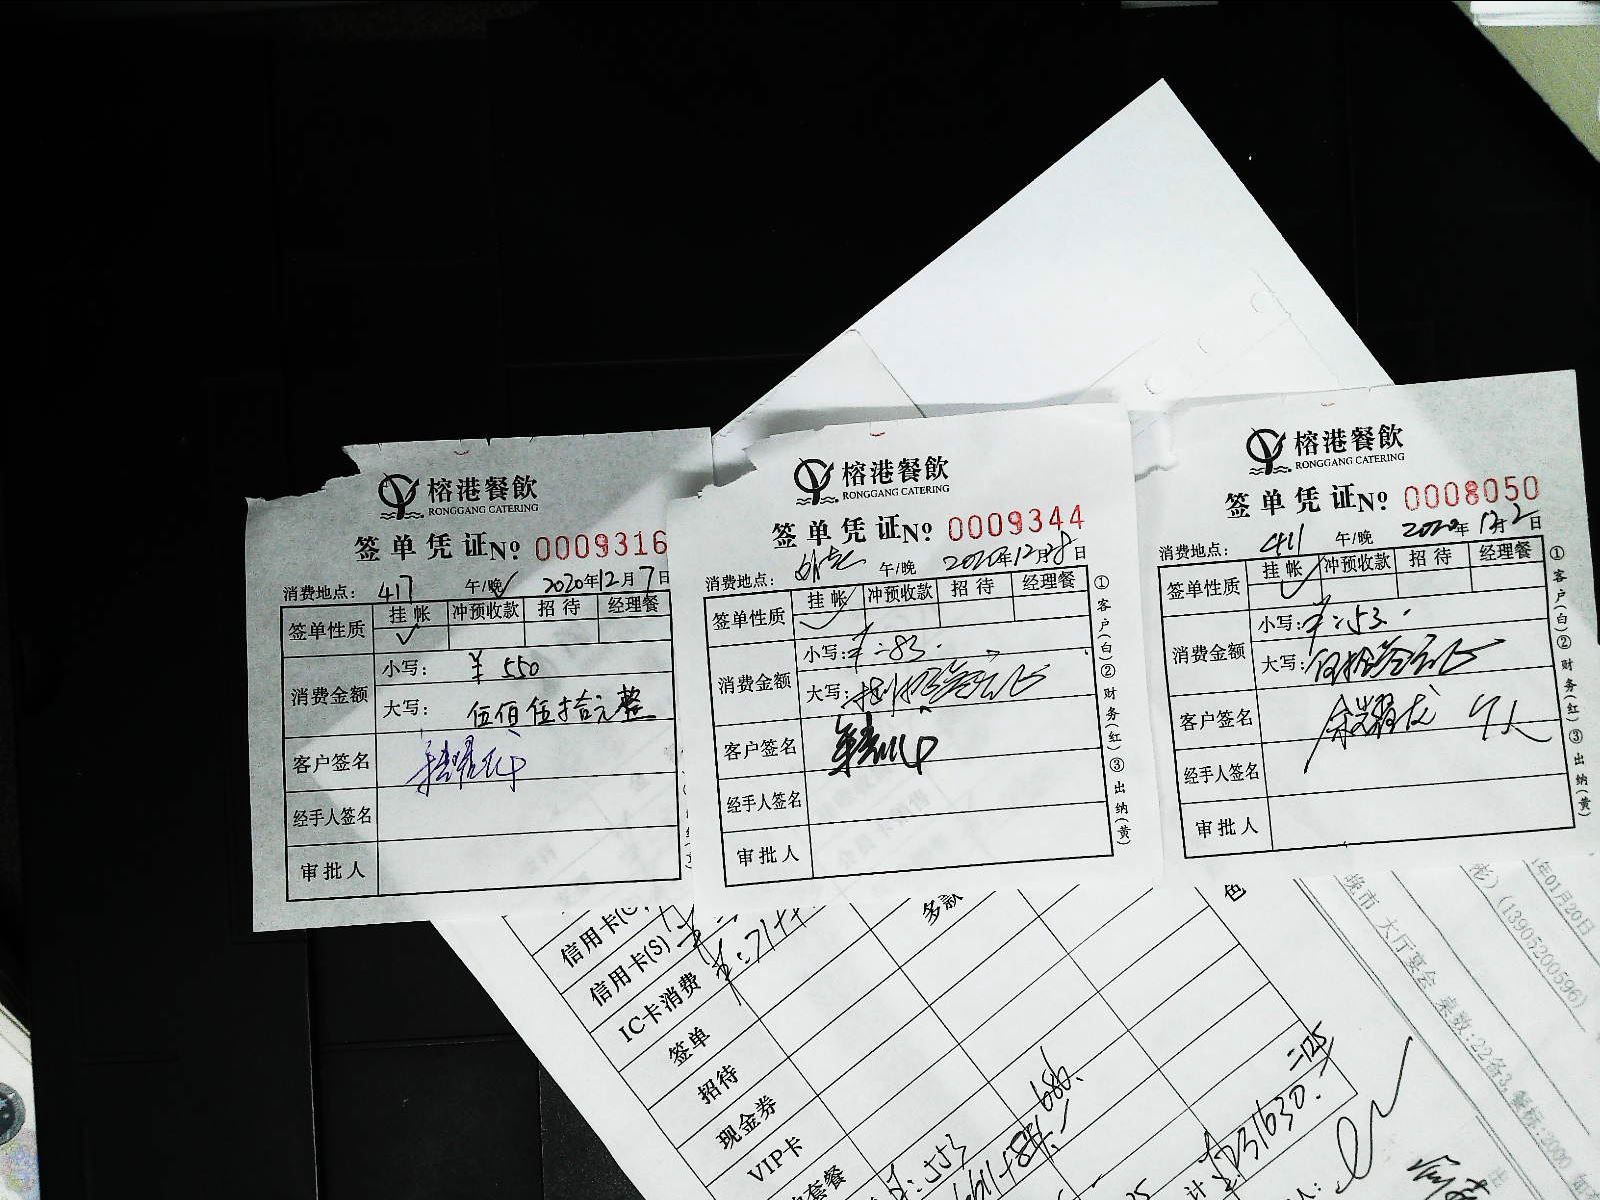 榕港餐飲
RONGGANG CATERING
签单凭证No 0009316
消费地点: 417 午/晚 2020年12月7日
签单性质 挂帐 冲预收款 招待 经理餐
消费金额
小写: ¥ 550
大写: 伍佰伍拾元整
客户签名
经手人签名
审批人
榕港餐飲
RONGGANG CATERING
签单凭证No 0009344
消费地点: 午/晚 2020年12月28日
签单性质 挂帐 冲预收款 招待 经理餐
消费金额
小写: ¥:83.
大写: 捌拾叁元正
客户签名
经手人签名
审批人
①客户(白)②财务(红)③出纳(黄)
榕港餐飲
RONGGANG CATERING
签单凭证No 0008050
消费地点: 411 午/晚 2020年12月2日
签单性质 挂帐 冲预收款 招待 经理餐
消费金额
小写: ¥:53.
大写: 伍拾叁元正
客户签名 个人
经手人签名
审批人
①客户(白)②财务(红)③出纳(黄)
多款
色
信用卡(C
信用卡(S)
IC卡消费
签单
招待
现金券
VIP卡
套餐
686.
计 31630.
=125
年01月20日
(13905200596)
大厅宴会 桌数:22备3,餐标:2000